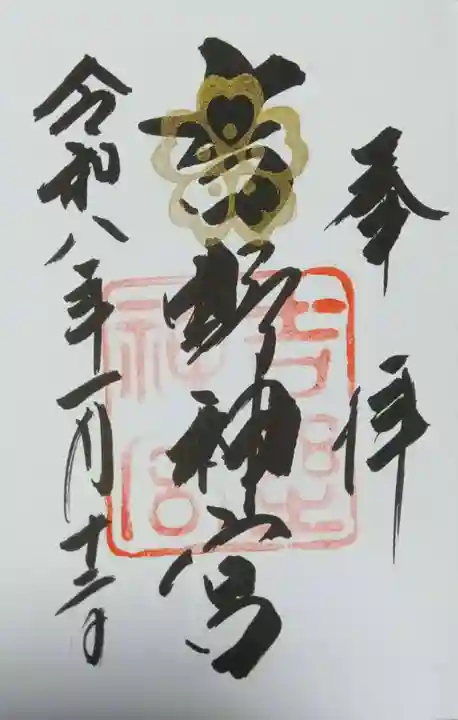 奉拝
吉野神宮
令和八年一月十二日
吉野神宮